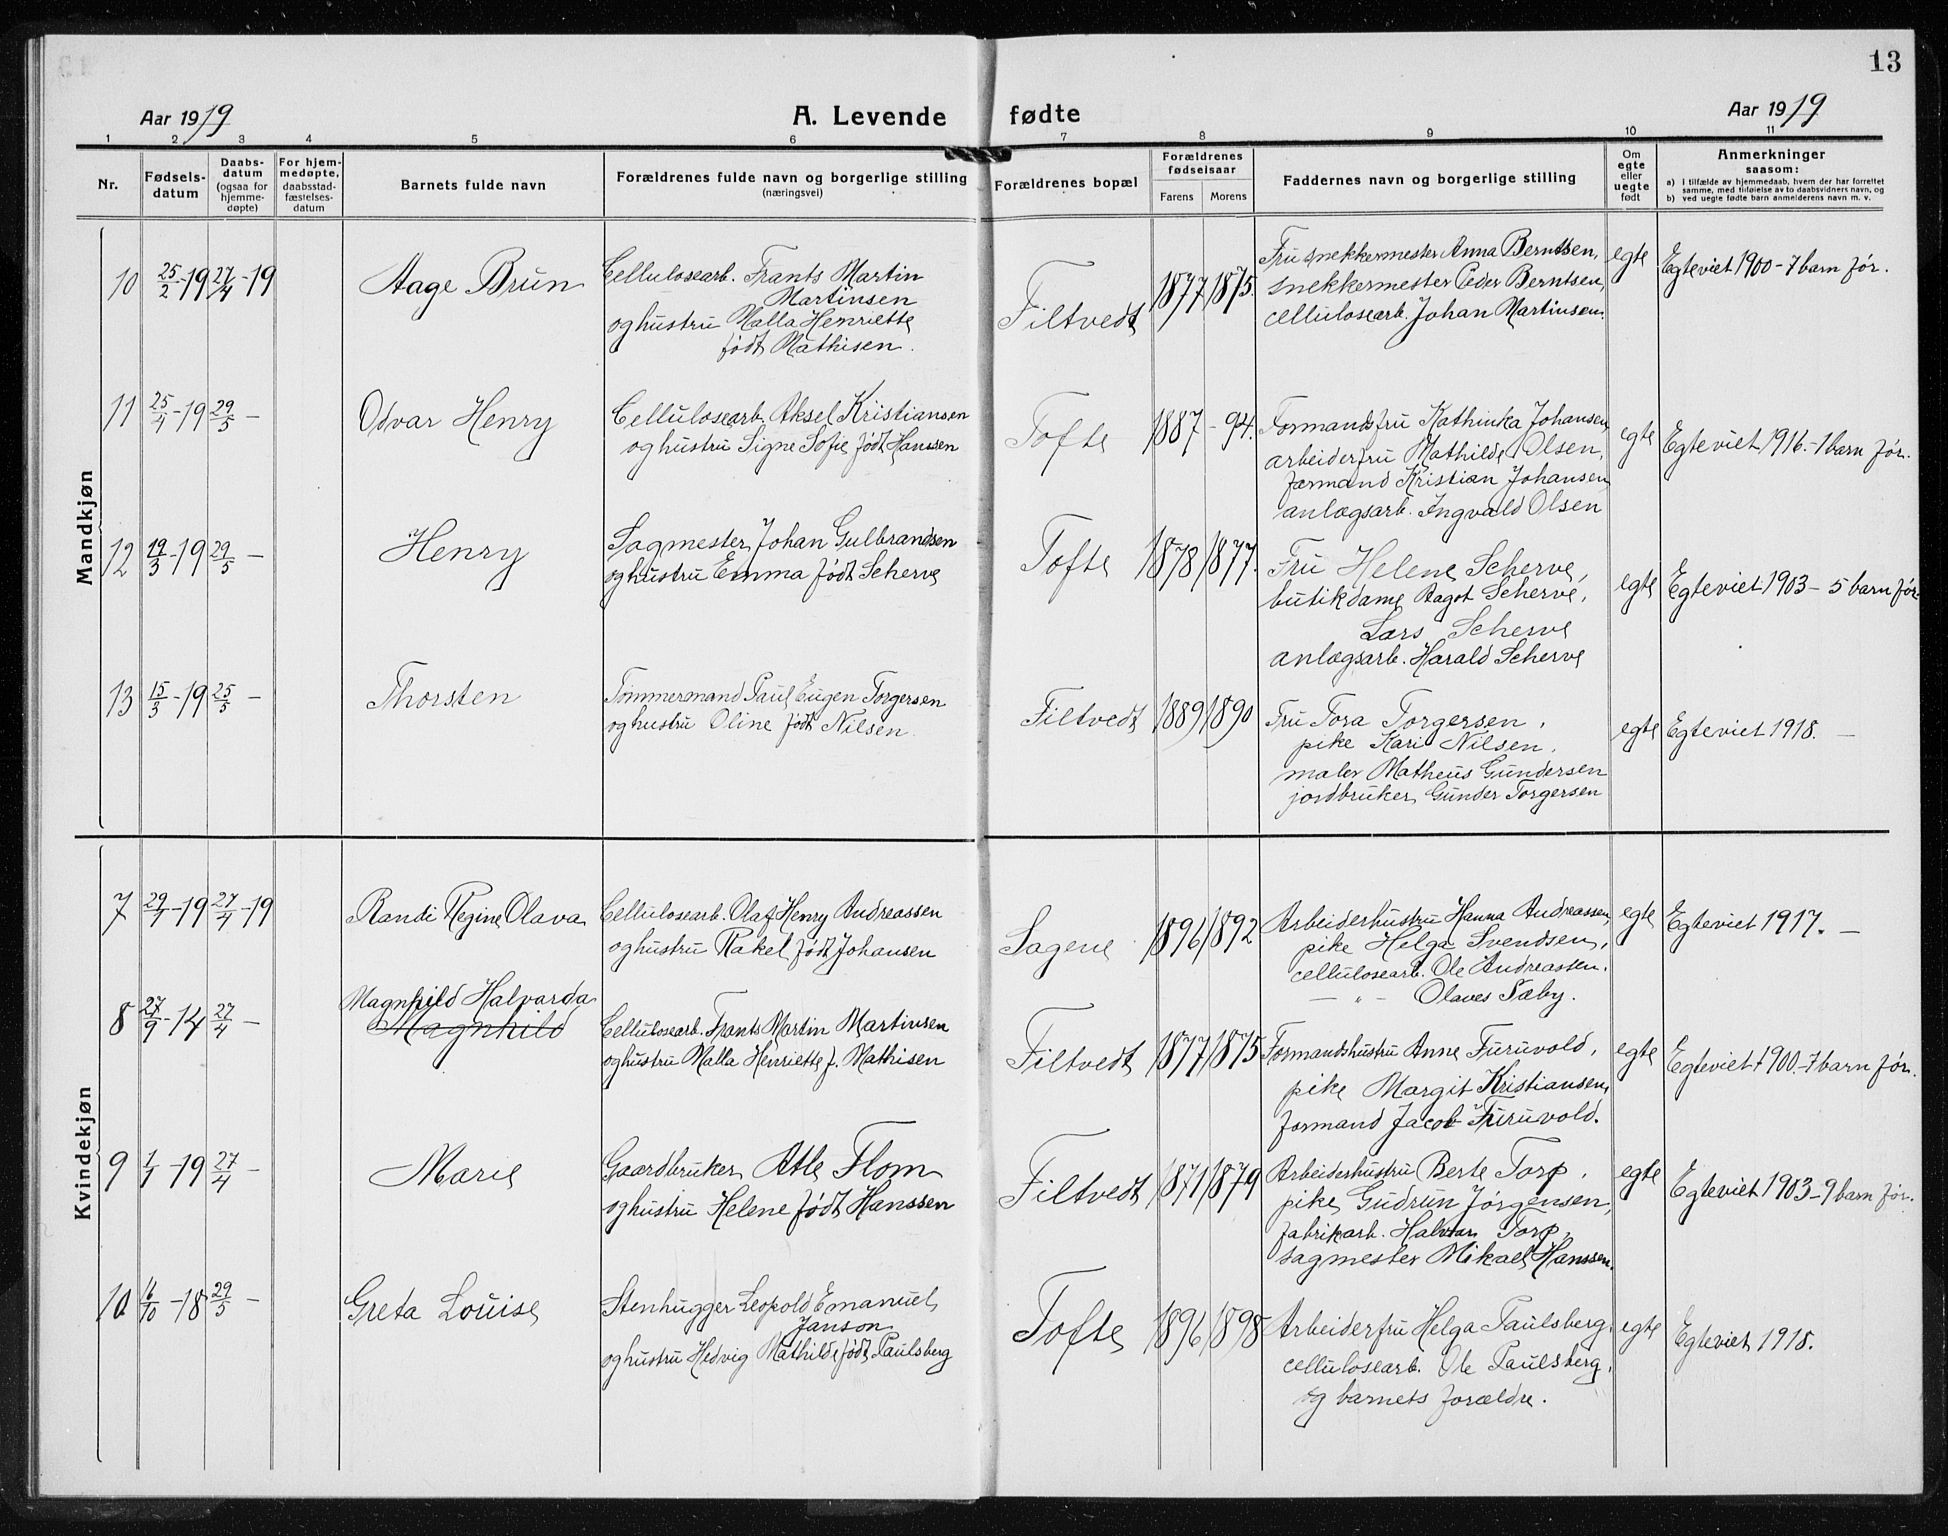 13
Aar 1919
A. Levende fødte
Aar 1919
1 2 3 4 5 6 7 8 9 10 11
Nr.
Fødsels-
datum
Daabs-
datum
(ogsaa for
hjemme-
døpte)
For hjem-
medøpte,
daabsstad-
fæstelses-
datum
Barnets fulde navn
Forældrenes fulde navn og borgerlige stilling
(næringsvei)
Forældrenes bopæl
Forældrenes
fødselsaar
Farens Morens
Faddernes navn og borgerlige stilling
Om
egte
eller
uegte
født
Anmerkninger
saasom:
a) I tilfælde av hjemmedaab, hvem der har forrettet
samme, med tilføielse av to daabsvidners navn, og
b) ved uegte fødte barn anmelderens navn m. v.
Mandkjøn
10 25/2-19 27/4-19
Aage Brun
Cellulosearb. Frants Martin
Martinsen
og hustru Malla Henriette
født Mathisen.
Filtvedt
1877 1875.
Fru snekkermester Anna Berntsen,
snekkermester Peder Berntsen,
cellulosearb. Johan Martinsen.
egte
Egteviet 1900 - 7 barn før.
11 25/4-19 29/5 -
Odvar Henry
Cellulosearb. Aksel Kristiansen
og hustru Signe Sofie født Hanssen
Tofte
1887 - 94.
Formandsfru Kathinka Johansen,
arbeiderfru Mathilde Olsen,
formand Kristian Johansen,
anlægsarb. Ingvald Olsen
egte
Egteviet 1916. - 1 barn før.
12 19/3-19 29/5 -
Henry
Sagmester Johan Gulbrandsen
og hustru Emma født Scherve
Tofte
1878 1877.
Fru Helene Scherve,
butikdame Aagot Scherve,
Lars Scherve
anlægsarb. Harald Scherve
egte
Egteviet 1903 - 5 barn før
13 15/3-19 25/5 -
Thorsten
Tømmermand Paul Eugen Torgersen
og hustru Oline født Nilsen.
Filtvedt
1889 1890
Fru Tora Torgersen,
pike Kari Nilsen,
maler Matheus Gundersen
jordbruker Gunder Torgersen
egte
Egteviet 1918. -
Kvindekjøn
7 29/1-19 27/4-19
Randi Regine Olava
Cellulosearb. Olaf Henry Andreassen
og hustru Rakel født Johansen
Sagene
1896 1892
Arbeiderhustru Hanna Andreassen,
pike Helga Svendsen,
cellulosearb. Ole Andreassen.
- " - Olaves Sæby.
egte
Egteviet 1917. -
8 27/9-14 27/4 -
Magnhild Halvarda
Magnhild
Cellulosearb. Frants Martin Martinsen
og hustru Malla Henriette f. Mathisen
Filtvedt
1877 1875
Formandshustru Anne Furuvold,
pike Margit Kristiansen,
formand Jacob Furuvold.
egte
Egteviet 1900. - 7 barn før.
9 1/1-19 27/4 -
Marie
Gaardbruker Atle Flom
og hustru Helene født Hanssen
Filtvedt
1871 1879
Arbeiderhustru Berte Torp,
pike Gudrun Jørgensen,
fabrikarb. Halvar Torp,
sagmester Mikael Hanssen.
egte
Egteviet 1903 - 9 barn før.
10 16/10-18 29/5 -
Greta Louise
Stenhugger Leopold Emanuel
Janson
og hustru Hedvig Mathilde født Paulsberg
Tofte
1896 1898
Arbeiderfru Helga Paulsberg,
cellulosearb. Ole Paulsberg,
og barnets forældre.
egte
Egteviet 1918.